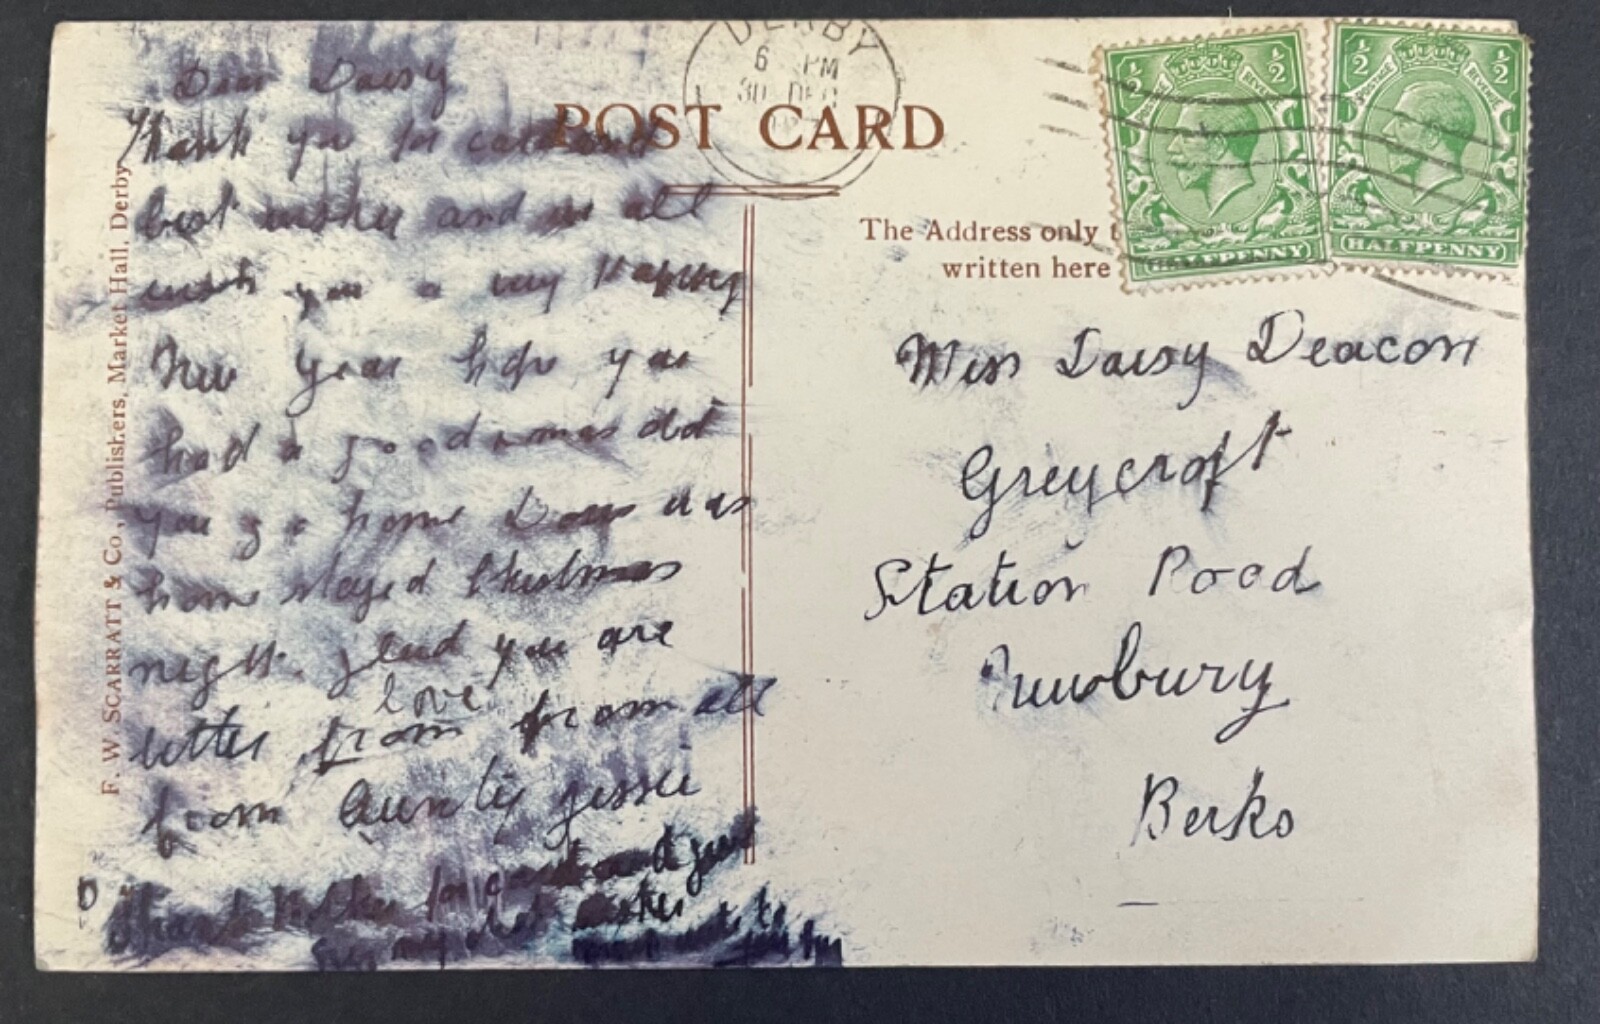 Dear Daisy
Thank you for card and
best wishes and we all
wish you a very Happy
New Year hope you
had a good did
you go home was
home stayed Christmas
night. glad you are
better from from all
love
from Aunty Jessie
Thank Mother for card and give
my best wishes
POST CARD
DERBY
6 PM
30 DEC
The Address only t
written here
½ ½
POSTAGE REVENUE
HALFPENNY
½ ½
POSTAGE REVENUE
HALFPENNY
Miss Daisy Deacon
Greycroft
Station Road
Newbury
Berks
F. W. SCARRATT & Co., Publishers, Market Hall, Derby